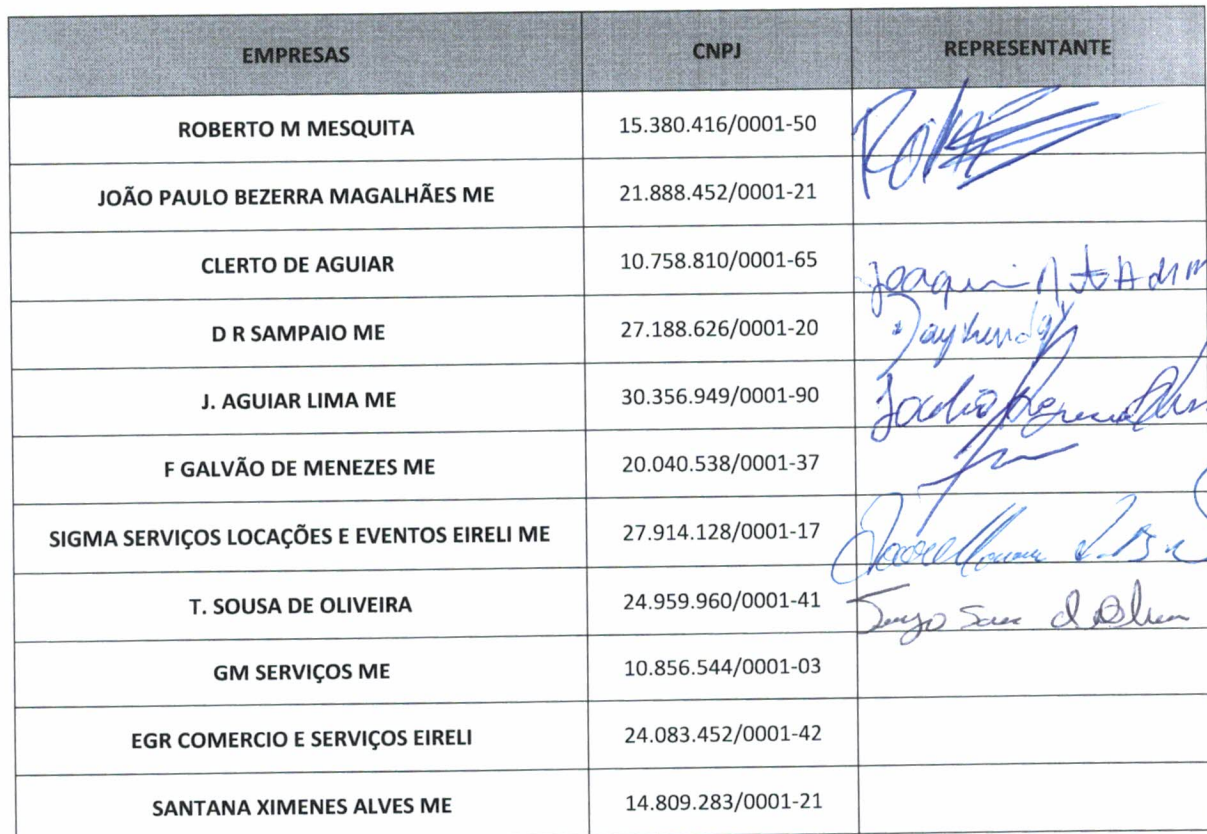 EMPRESAS CNPJ REPRESENTANTE
ROBERTO M MESQUITA 15.380.416/0001-50
JOÃO PAULO BEZERRA MAGALHÃES ME 21.888.452/0001-21
CLERTO DE AGUIAR 10.758.810/0001-65 Joaquim
D R SAMPAIO ME 27.188.626/0001-20
J. AGUIAR LIMA ME 30.356.949/0001-90
F GALVÃO DE MENEZES ME 20.040.538/0001-37
SIGMA SERVIÇOS LOCAÇÕES E EVENTOS EIRELI ME 27.914.128/0001-17
T. SOUSA DE OLIVEIRA 24.959.960/0001-41
GM SERVIÇOS ME 10.856.544/0001-03
EGR COMERCIO E SERVIÇOS EIRELI 24.083.452/0001-42
SANTANA XIMENES ALVES ME 14.809.283/0001-21